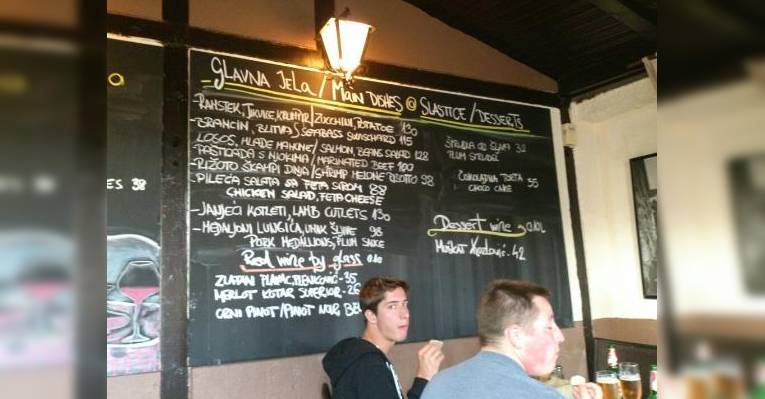 GLAVNA JELA / MAIN DISHES @ SLASTICE / DESSERTS
- RAMSTEK, TIKVICE, KRUMPIR / ZUCCHINI, POTATOE 130
- BRANCIN, BLITVA / SEABASS SWISSCHARD 115
LOSOS, HLADE MAHUNE / SALMON, BEANS SALAD 128
- PASTICADA S NJOKIMA / MARINATED BEEF 100
- RIŽOTO ŠKAMPI DINJA / SHRIMP MELONE RISOTTO 98
- PILEĆA SALATA SA FETA SIROM 88
CHICKEN SALAD, FETA CHEESE
- JANJEĆI KOTLETI, LAMB CUTLETS 130
- MEDALJONI LUNGIĆA, UMAK ŠLJIVE 98
PORK MEDALLIONS, PLUM SAUCE
Red wine by glass 0.10
ZLATAN PLAVAC, PLENKOVIĆ - 35
MERLOT KOTAR SUPERIOR - 26
CRNI PINOT / PINOT NOIR
ŠTRUDLA OD ŠLJIVA 32
PLUM STRUDEL
ČOKOLADNA TORTA 35
CHOCO CAKE
Dessert wine 0.10L
MUŠKAT 42
ES 38